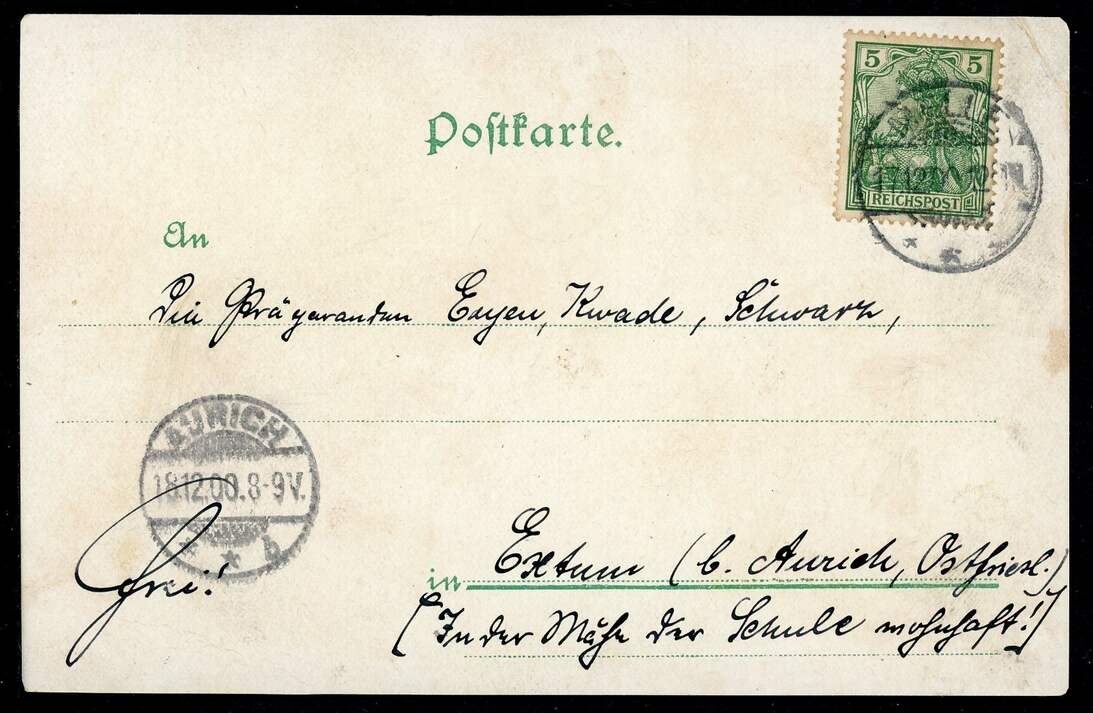 5 5
REICHSPOST
17.12.00.12
Postkarte.
An
Die Präparanden Eayen, Kwade, Schwarz,
AURICH
18.12.00.8-9V.
* * b
Frei!
in Extum (b. Aurich, Ostfriesl.)
(In der Nähe der Schule wohnhaft!)